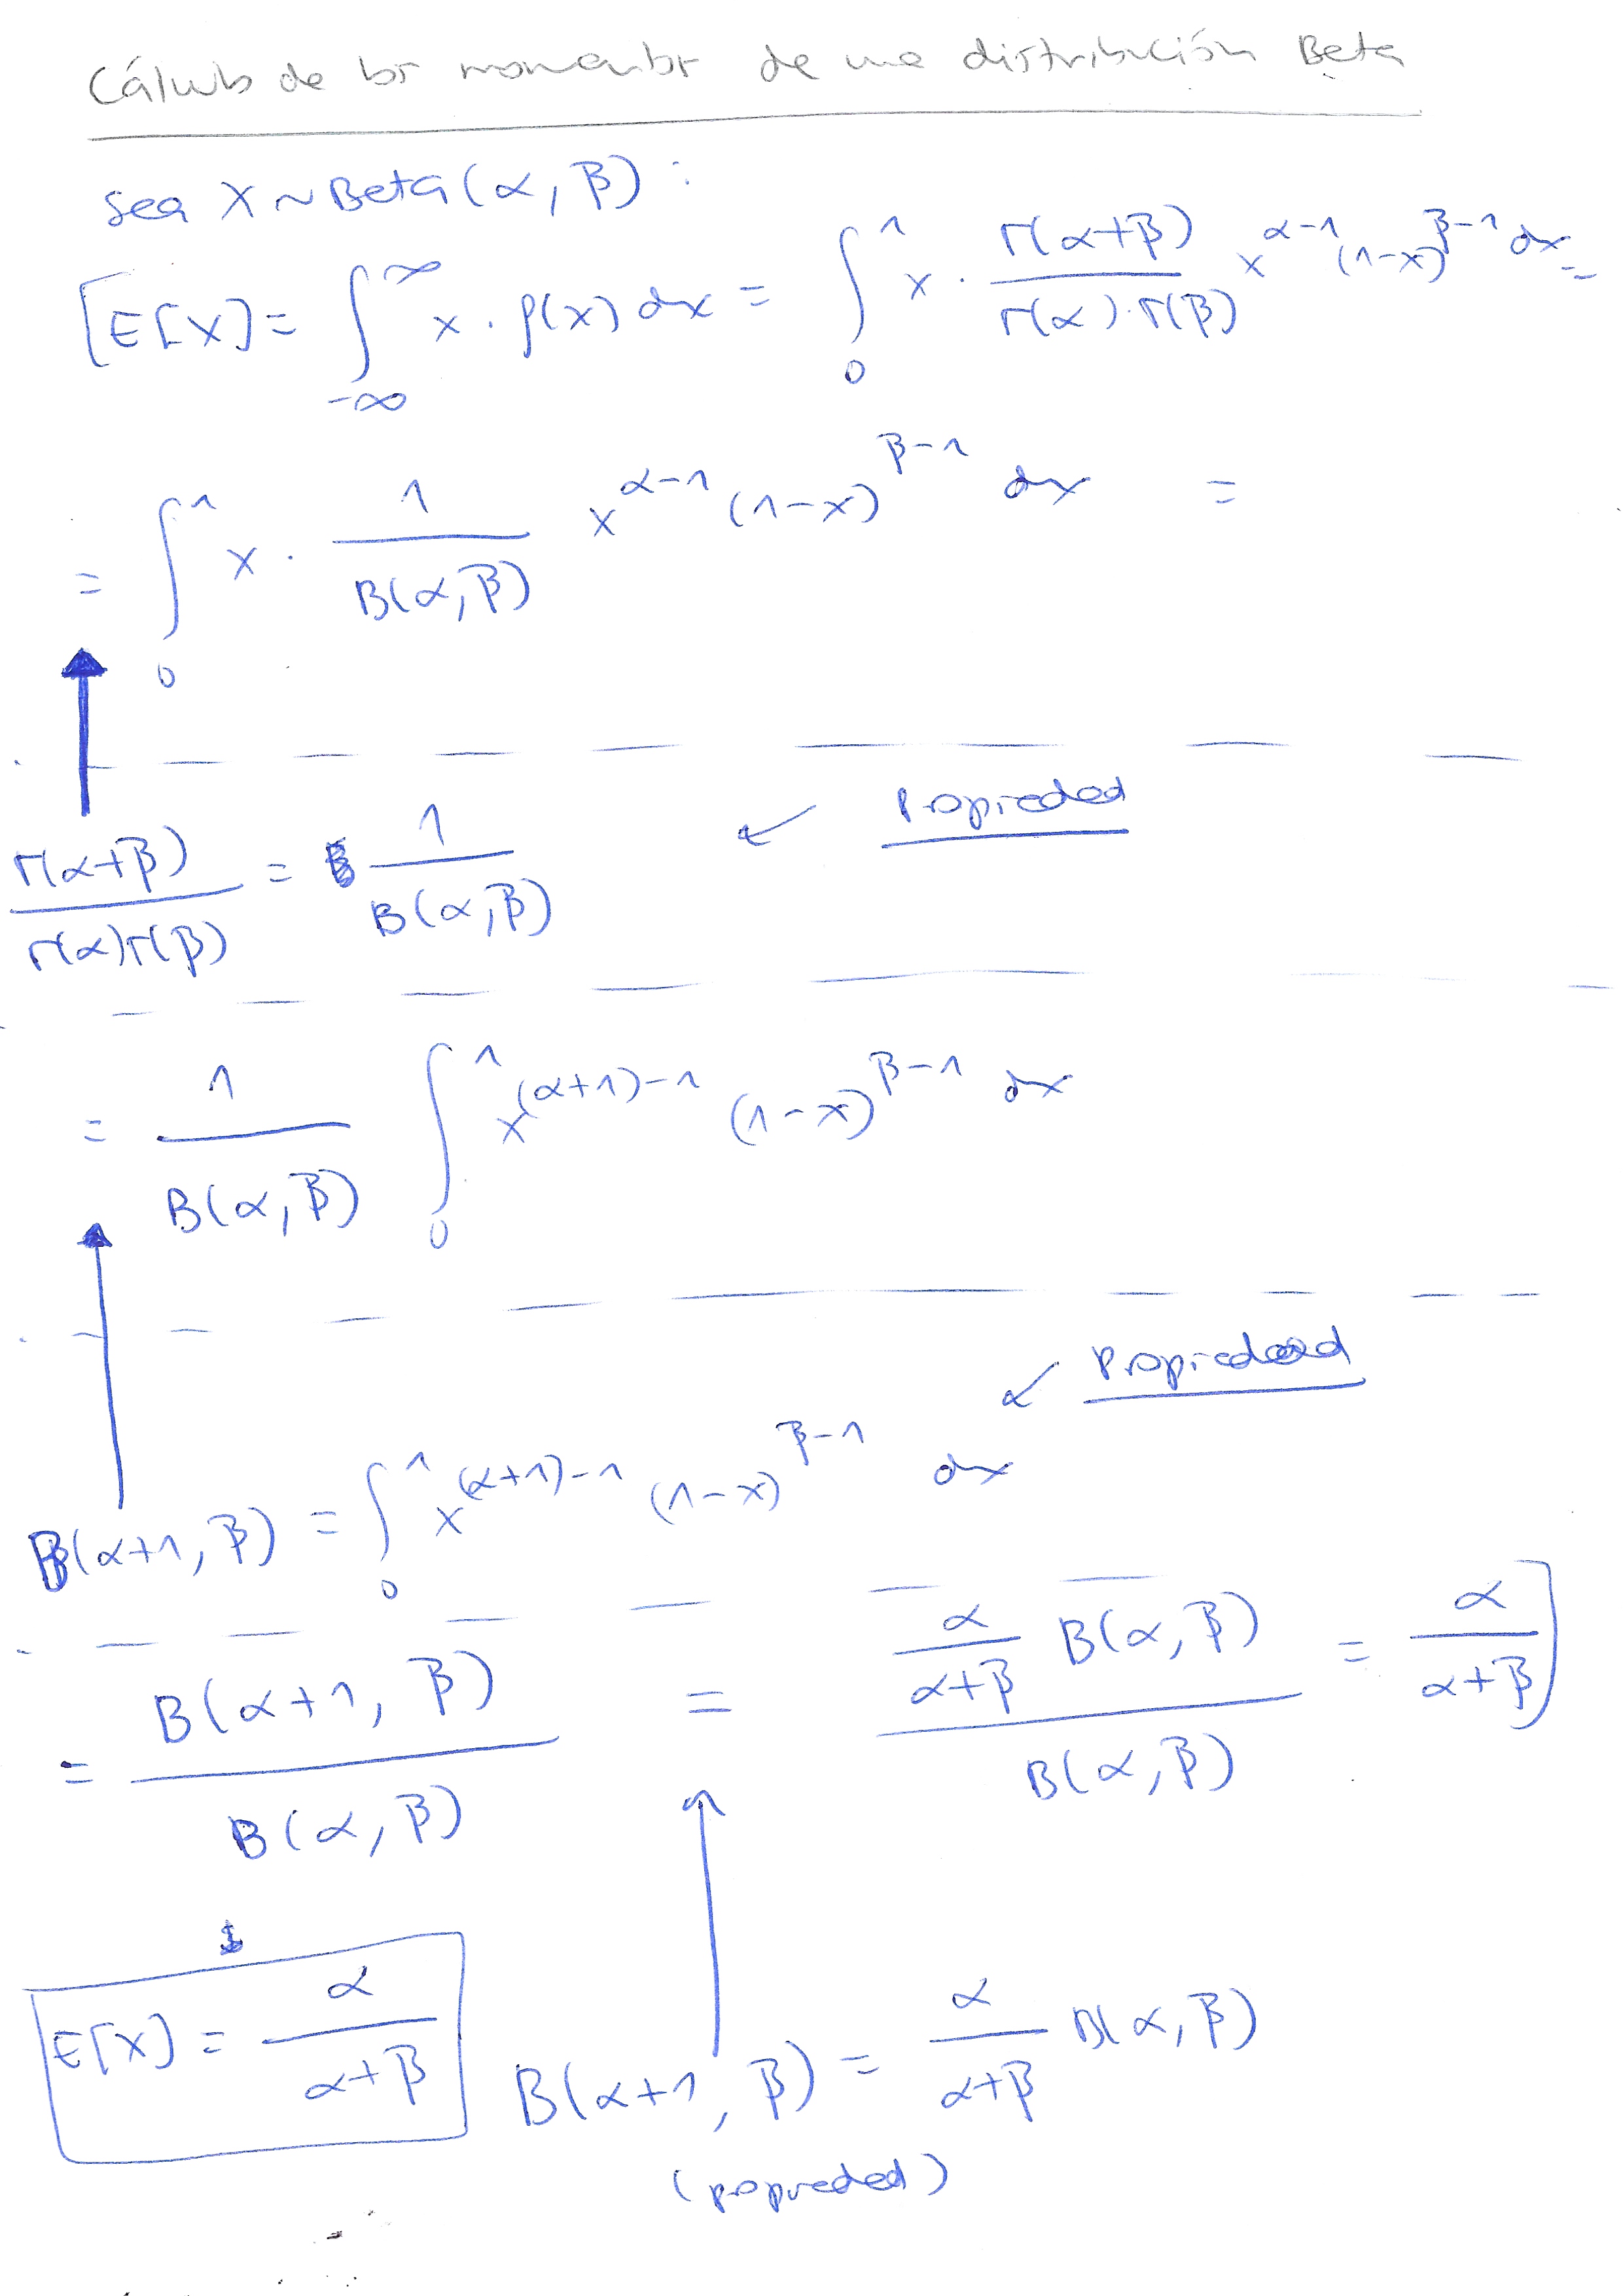 Cálculo de los momentos de una distribución Beta
Sea X ~ Beta(α, β) :
[E[X] = ∫_{-∞}^{∞} x · f(x) dx = ∫_0^1 x · Γ(α+β) / (Γ(α)·Γ(β)) x^{α-1} (1-x)^{β-1} dx =
= ∫_0^1 x · 1 / B(α, β) x^{α-1} (1-x)^{β-1} dx =
Γ(α+β) / (Γ(α)Γ(β)) = 1 / B(α, β) ↙ Propiedad
= 1 / B(α, β) ∫_0^1 x^{(α+1)-1} (1-x)^{β-1} dx
↙ Propiedad
B(α+1, β) = ∫_0^1 x^{(α+1)-1} (1-x)^{β-1} dx
= B(α+1, β) / B(α, β) = (α / (α+β) B(α, β)) / B(α, β) = α / (α+β) ]
E[X] = α / (α+β)
B(α+1, β) = α / (α+β) B(α, β)
(propiedad)